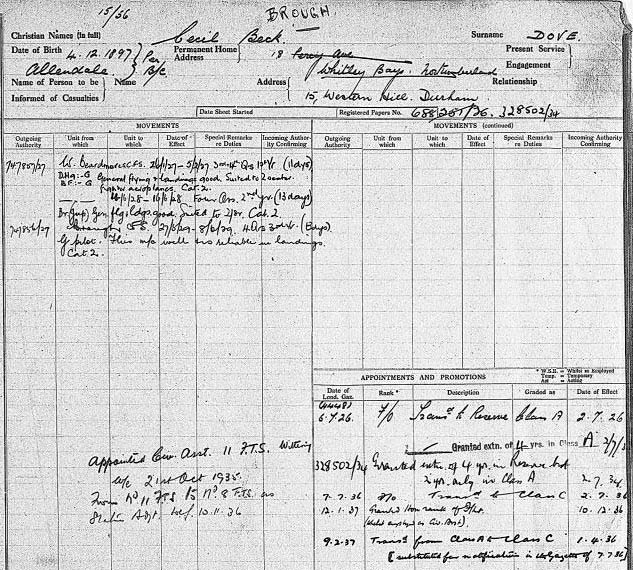 15/56
BROUGH.
Christian Names (in full) Cecil Beck Surname DOVE.
Date of Birth 4.12.1897 Per B/c
Permanent Home Address 18 Percy Ave
Present Service
Allendale
Whitley Bay. Northumberland
Engagement
Name of Person to be Informed of Casualties
Name
Address
15, Western Hill. Durham
Relationship
Date Sheet Started
Registered Papers No. 328502/34
MOVEMENTS
Outgoing Authority
Unit from which
Unit to which
Date of Effect
Special Remarks re Duties
Incoming Authority Confirming
W. Beardmore CFS. 5/2/27 (11 days)
General flying & landings good. Suited to 2 seater
fighter aeroplanes. Cat. 2.
Four Qrs. 2nd yr. (13 days)
Gen. flg. & ldgs. good. Suited to Cat 2.
G. pilot. Flies m/c well & is reliable in landings.
Cat. 2.
Appointed Civ. Asst. 11 F.T.S. Wittering
21st Oct 1935.
From No 11 F.T.S. to No 8 F.T.S. as
Station Adjt. wef. 10.11.36
MOVEMENTS (continued)
Outgoing Authority
Unit from which
Unit to which
Date of Effect
Special Remarks re Duties
Incoming Authority Confirming
* W.S.E. = Whilst so Employed
Temp. = Temporary
Act = Acting
APPOINTMENTS AND PROMOTIONS
Date of Lond. Gaz.
Rank *
Description
Graded as
Date of Effect
6.7.26 F/O Transd to Reserve Class A 2.7.26
Granted extn. of 4 yrs. in Class A
328502/34 Granted extn. of 4 yrs. in Reserve but
2 yrs. only in Class A 2.7.34
7.7.36 F/O Transd to Class C 2.7.36
12.1.37 Granted Hon rank of F/Lt. 10.12.36
(whilst employed as Civ. Asst).
9.2.37 Transd from Class A to Class C 1.4.36
[substituted for notification in the Gazette of 7.7.36]